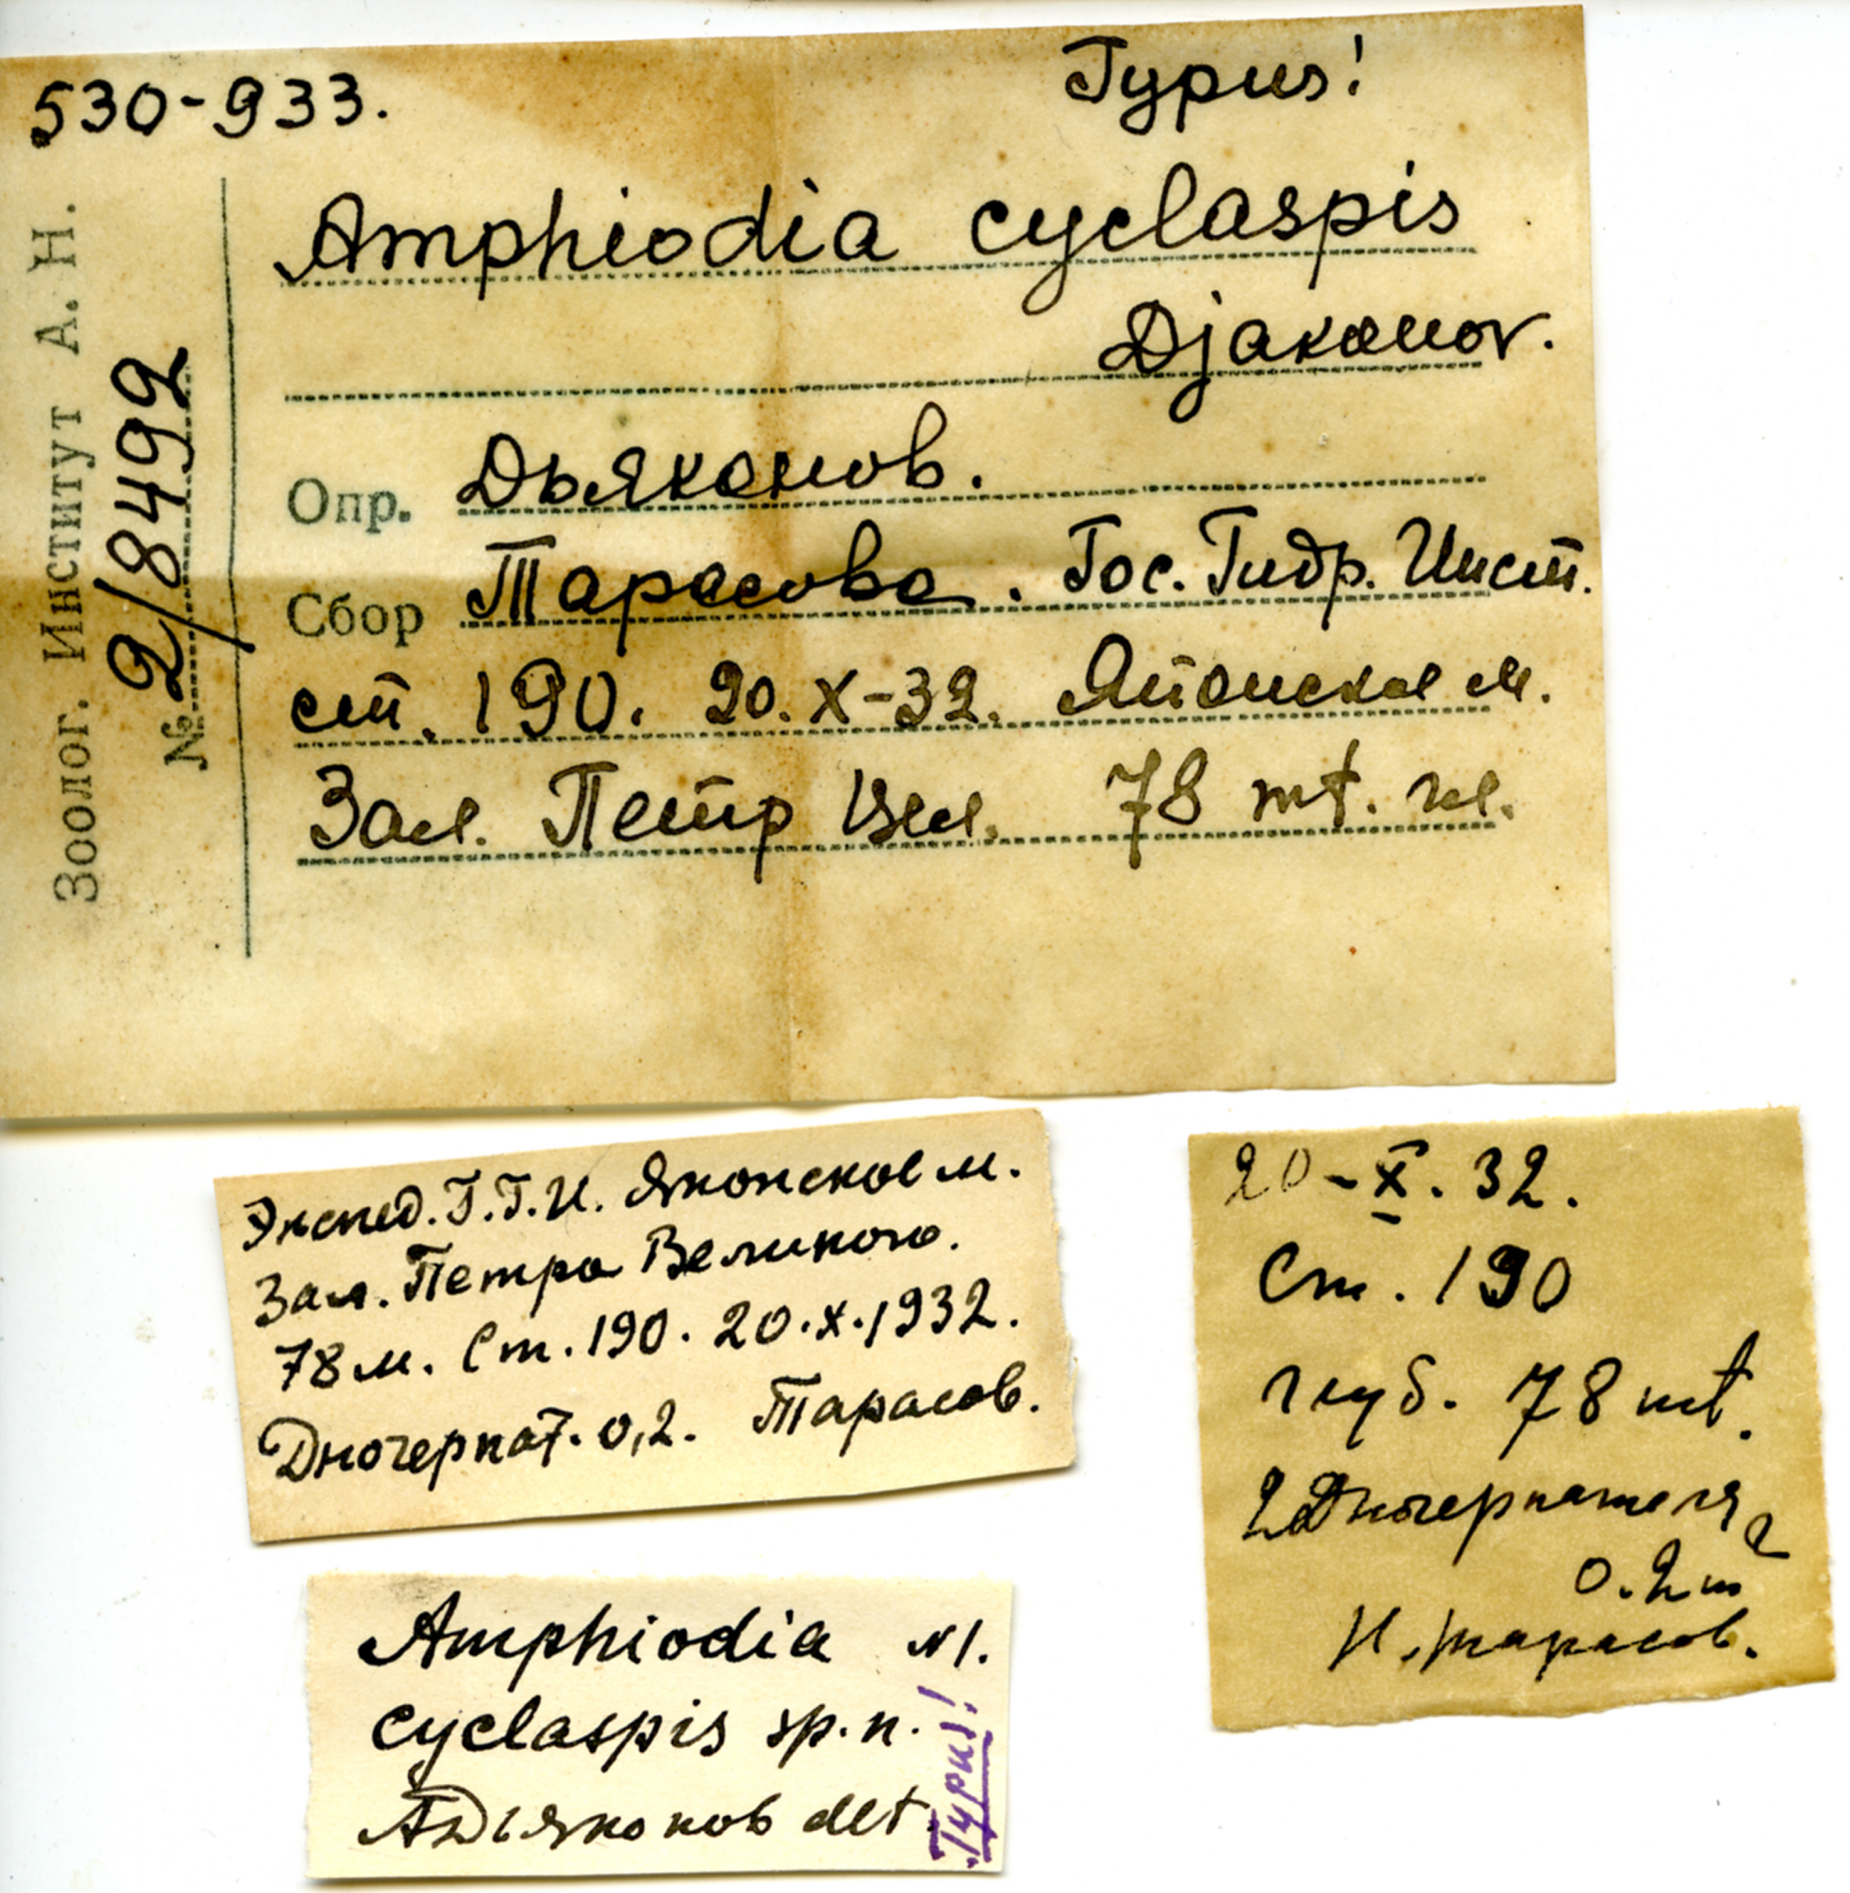 530-933.
Typus!
Зоолог. Институт А. Н.
№ 2/8499
Amphiodia cyclaspis
Djakonov.
Опр. Дьяконов.
Сбор Тарасова. Гос. Гидр. Инст.
ст. 190. 20. X-32. Японское м.
Зал. Петр Вел. 78 mt. гл.
Экспед. Г.Г.И. Японское м.
Зал. Петра Великого.
78 м. Ст. 190. 20.X.1932.
Дночерпат. 0,2. Тарасов.
20-X. 32.
Ст. 190
глуб. 78 mt.
2 Дночерпателя
0.2 m2
Н. Тарасов.
Amphiodia N1.
cyclaspis sp. n.
А Дьяконов det.
Typus!